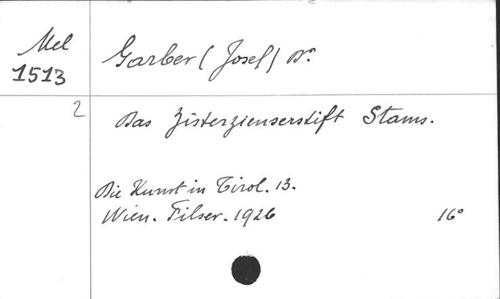 Mel
1513
Garber (Josef) Dr.
2
Das Zisterzienserstift Stams.
Die Kunst in Tirol. 13.
Wien. Filser. 1926
16°